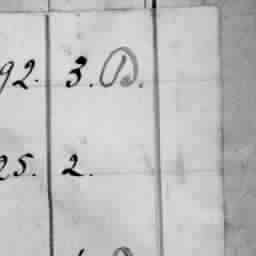 92. 3. D.
25. 2.